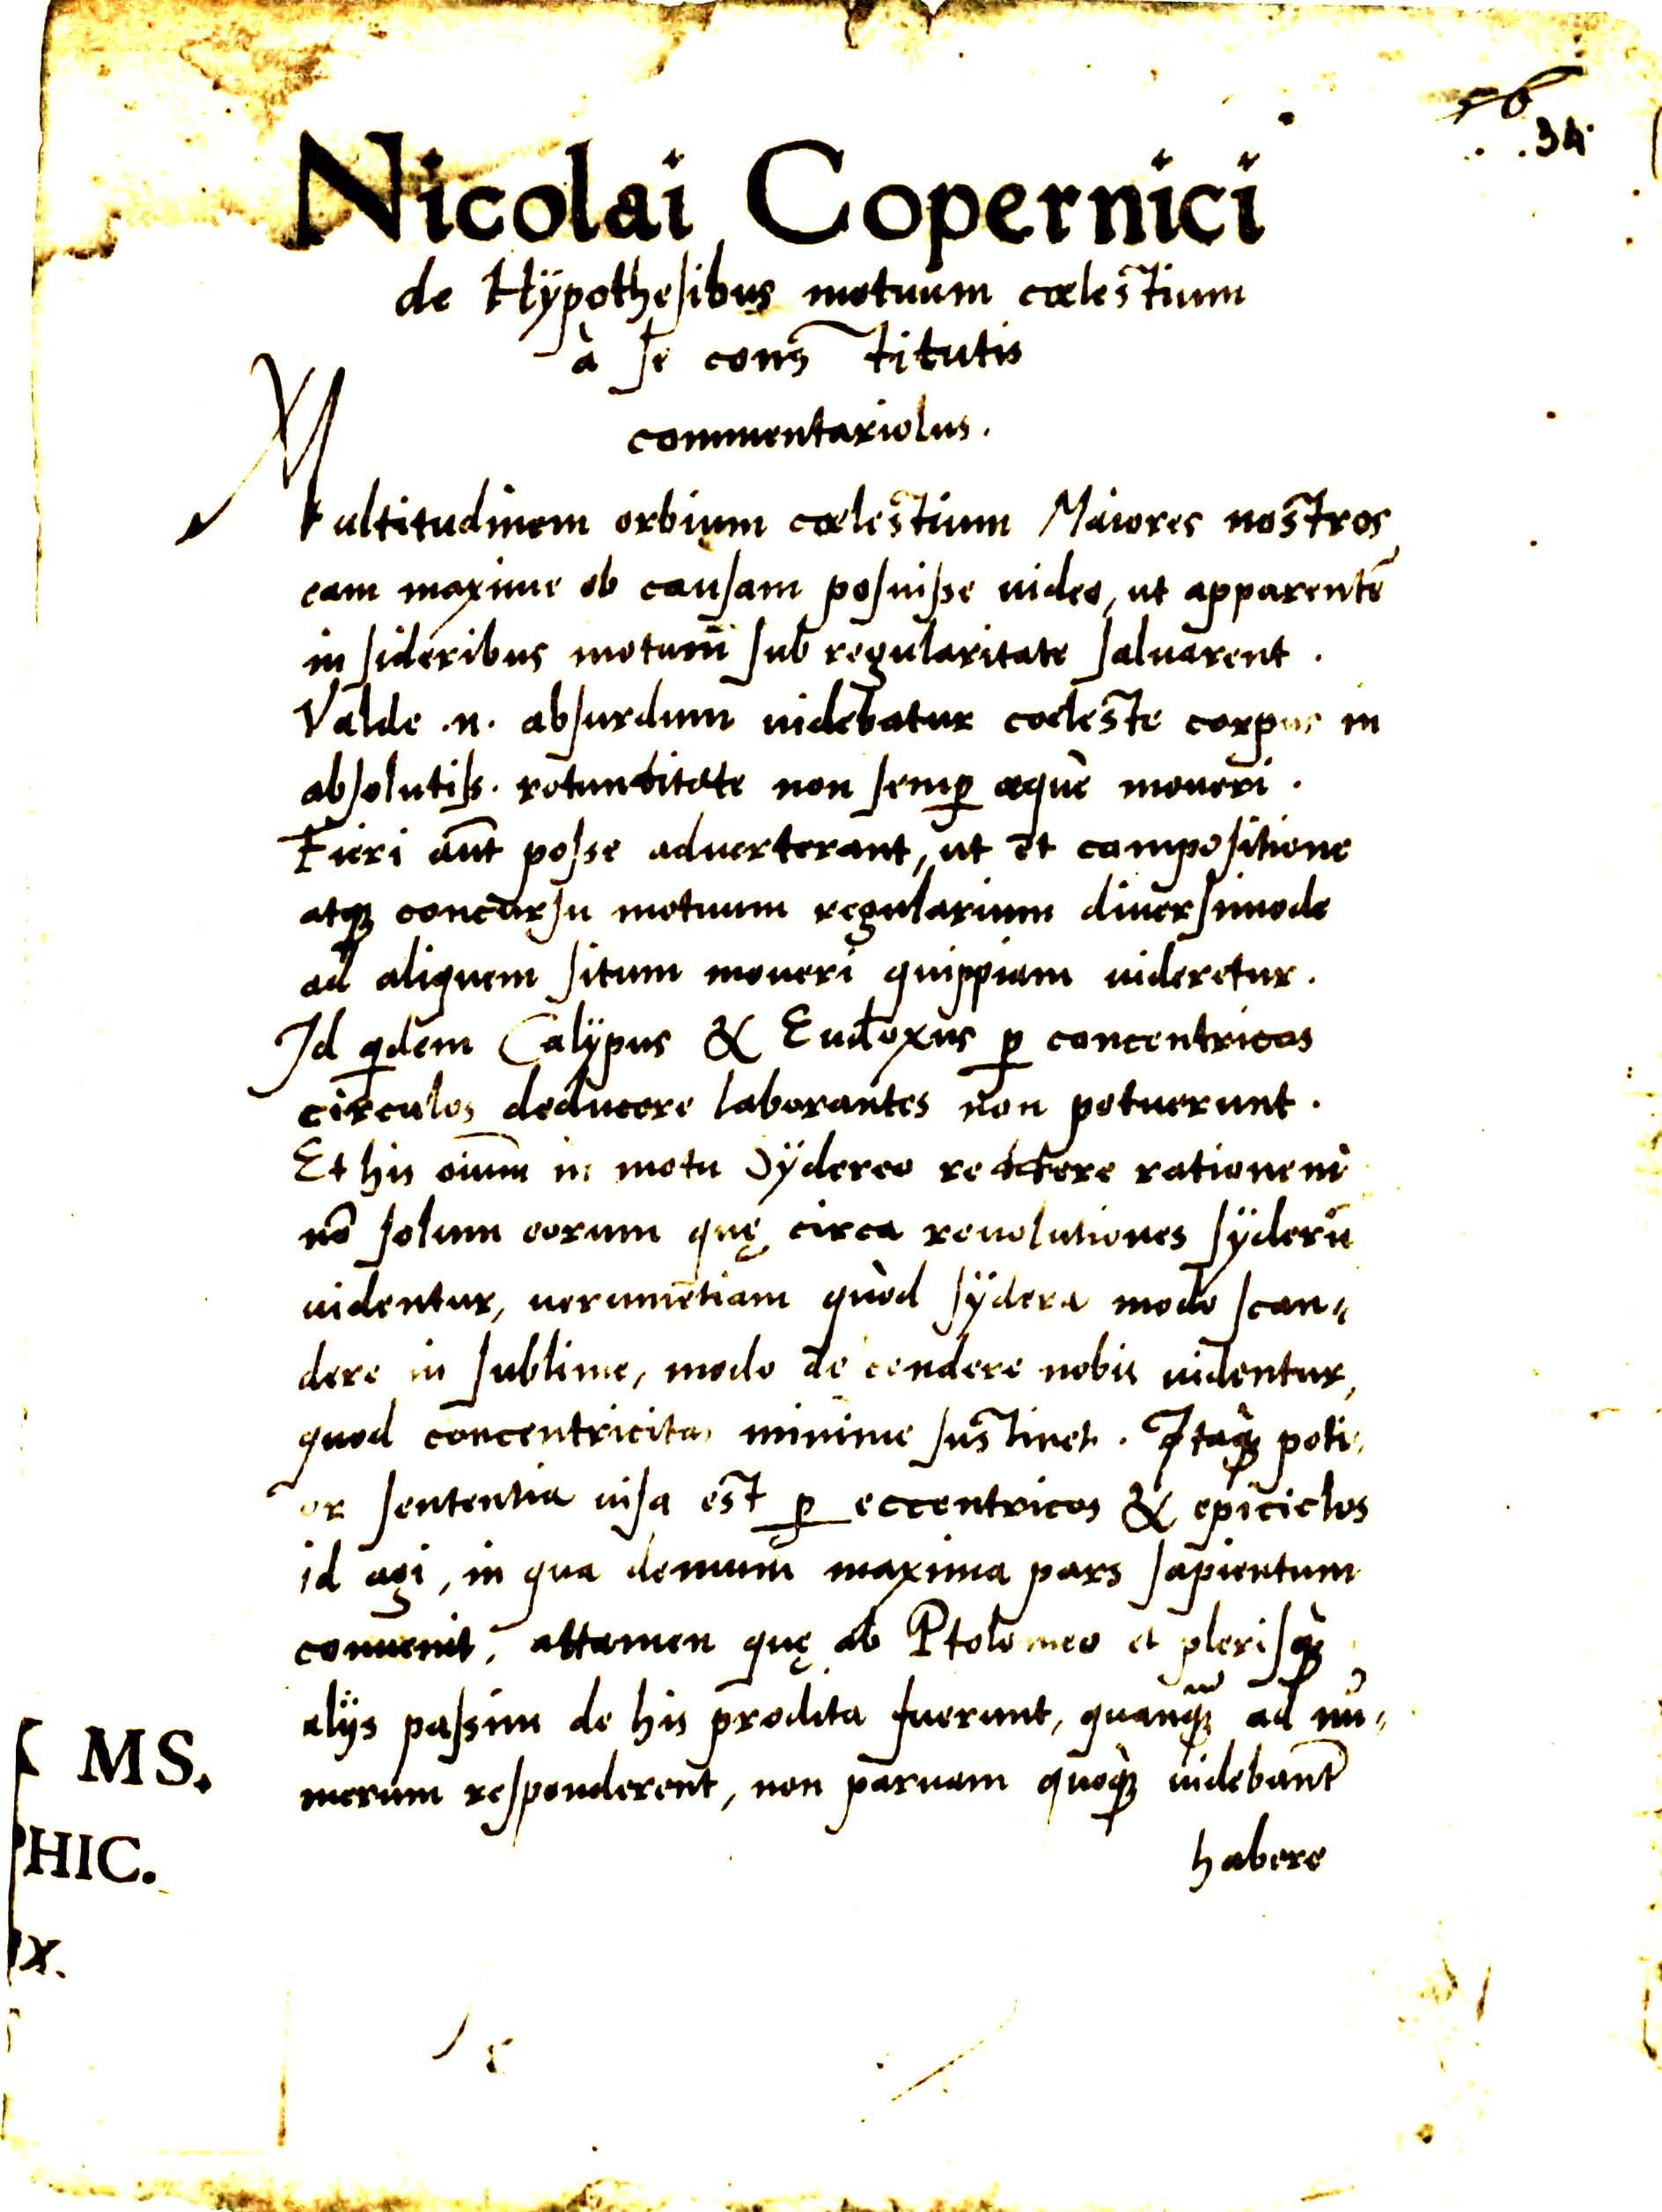 34
Nicolai Copernici
de Hÿpothesibus motuum cœlestium
à se constitutis
commentariolus.
Multitudinem orbium cœlestium Maiores nostros
eam maxime ob causam posuisse uideo, ut apparentẽ
in sideribus motum sub regularitate saluarent.
Valde .n. absurdum uidebatur cœleste corpus in
absolutiss. rotunditate non semꝑ æque moueri.
Fieri aũt posse aduerterant, ut et compositione
atqꝫ concursu motuum regularium diuersimode
ad aliquem situm moueri quippiam uideretur.
Id qdem Calÿpus & Eudoxus ꝑ concentricos
circulos deducere laborantes non potuerunt.
Et his oium in motu Sÿdereo reddere rationem
nõ solum eorum quę circa reuolutiones sÿderũ
uidentur, uerumetiam quòd sÿdera modo scan-
dere in sublime, modo descendere nobis uidentur,
quod concentricitas minime sustinet. Itaqꝫ poti-
or sententia uisa est ꝑ eccentricos & epiciclos
id agi, in qua demum maxima pars sapientum
conuenit, attamen quę ab Ptolomeo et plerisqꝫ
alÿs passim de his prodita fuerunt, quanqꝫ ad nu-
merum responderent, non paruam quoqꝫ uidebant
habere
MS.
HIC.
X.